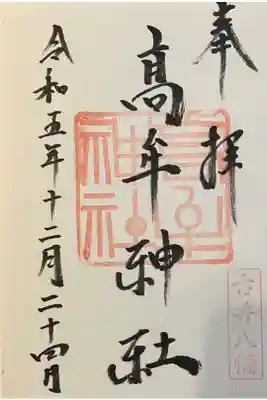 奉拝
高牟神社
高牟神社
古井八幡
令和五年十二月二十四日